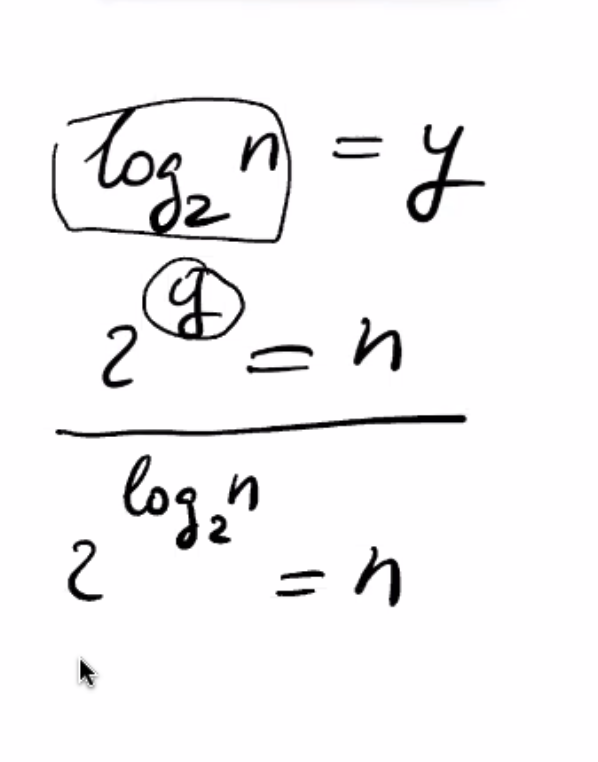 log₂ n = y
2^y = n
2^(log₂ n) = n